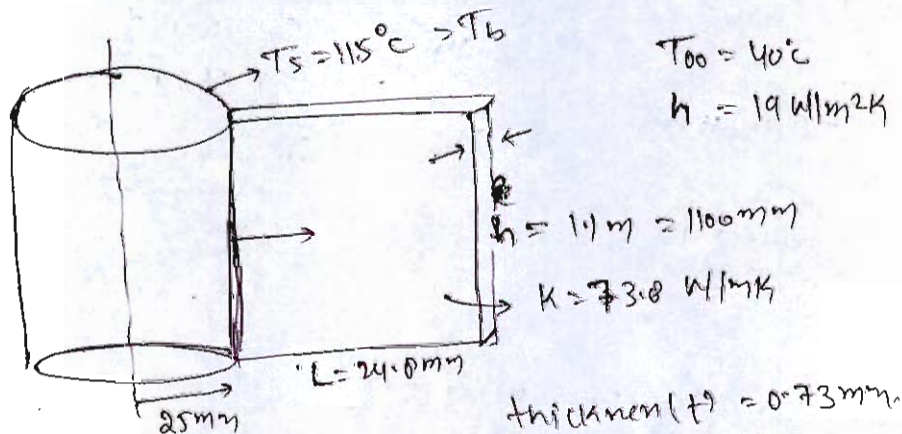 Ts = 115°C = Tb
T∞ = 40°C
h = 19 W/m²K
h = 1.1m = 1100mm
K = 73.8 W/mK
L = 24.8mm
25mm
thickness(t) = 0.73mm.